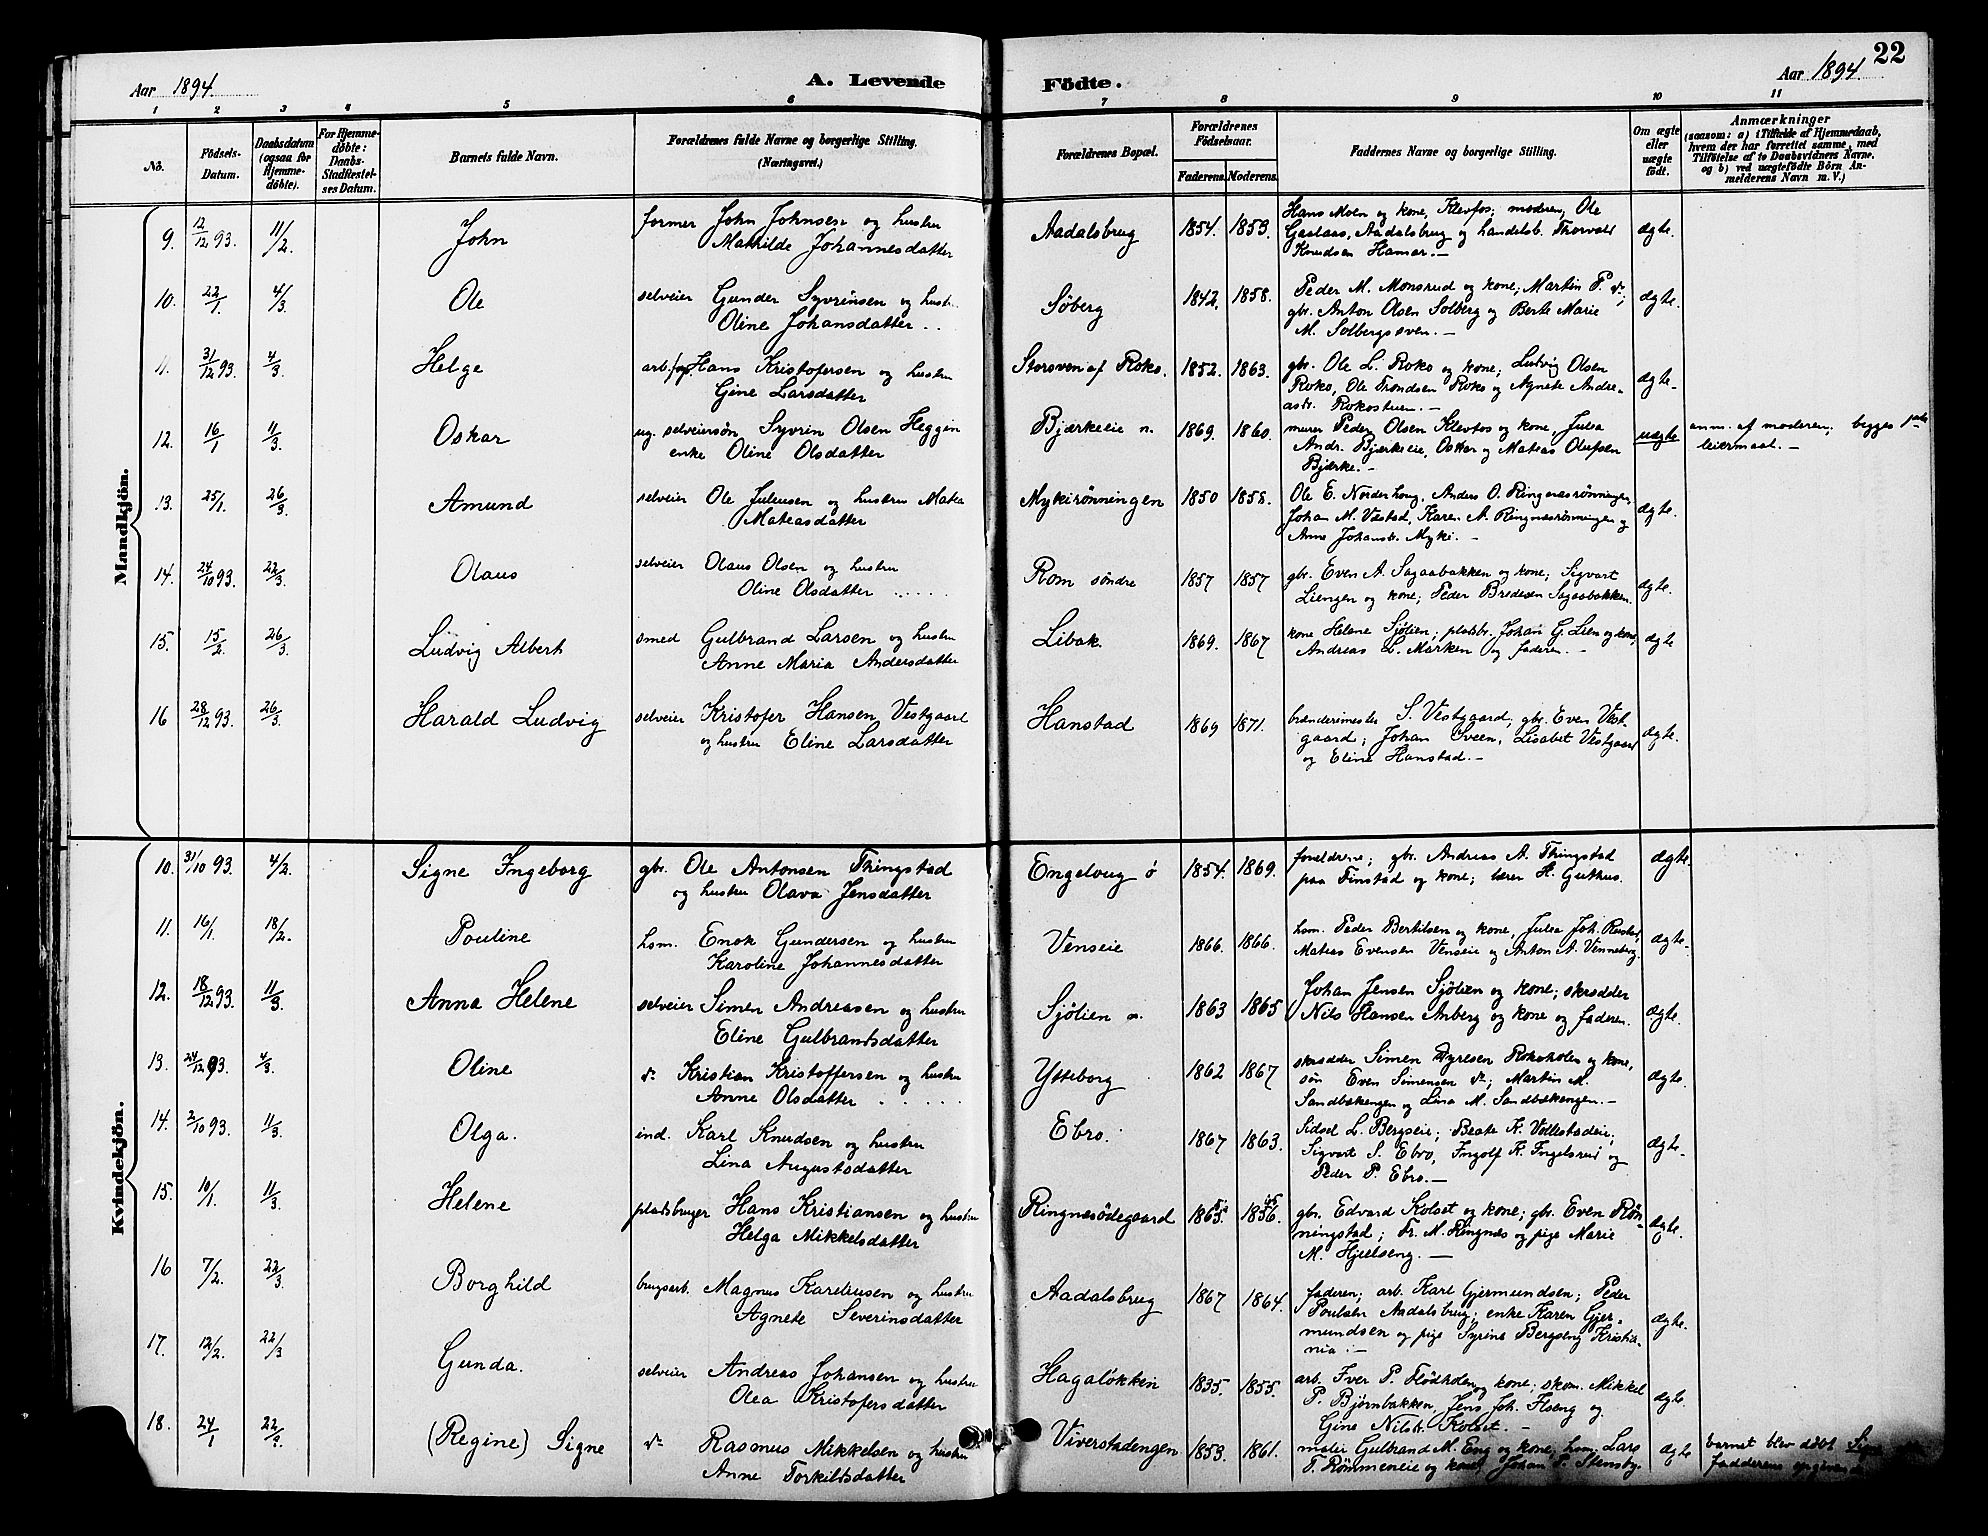 22
Aar 1894. A. Levende Födte. Aar 1894.
1 2 3 4 5 6 7 8 9 10 11
No. Födsels-Datum. Daabsdatum (ogsaa for Hjemme-döbte). For Hjemme-döbte: Daabs-Stadfæstel-ses Datum. Barnets fulde Navn. Forældrenes fulde Navne og borgerlige Stilling. (Næringsvei.) Forældrenes Bopæl. Forældrenes Födselsaar. Faderens. Moderens. Faddernes Navne og borgerlige Stilling. Om ægte eller uægte födt. Anmærkninger (saasom: a) i Tilfælde af Hjemmedaab, hvem der har forrettet samme, med Tilföielse af to Daabsvidners Navne, og b) ved uægtefödte Börn An-melderens Navn m. V.)
Mandkjön.
9. 12/12 93. 11/2. John former John Johnsen og hustru Aadalsbrug 1854. 1853. Hans Moen og kone, Klevfos; moderen, Ole ægte.
Mathilde Johannesdatter Gaslaas, Aadalsbrug og handelsb. Thorvald
Knudsen Hamar. —
10. 22/1. 4/3 Ole selveier Gunder Syvrinsen og hustr. Söberg 1842. 1858. Peder M. Monsrud og kone; Martin P. do; ægte.
Oline Johansdatter . . gbr. Anton Olsen Solberg og Berte Marie
M. Solbergsveen. —
11. 31/12 93. 4/3. Helge arb/fog Hans Kristofersen og hustru Storsveen af Roko. 1852. 1863. gbr. Ole L. Roko og kone; Ludvig Olsen ægte.
Gine Larsdatter Roko, Ole Trondsen Roko og Agnete Andre-
asdr. Rokostuen. —
12. 16/1 11/3. Oskar ug. selveiersön Syvrin Olsen Heggin Bjærkeeie n. 1869. 1860. murer Peder Olsen Klevfos og kone, Julia uægte anm. af moderen; begges 1ste
enke Oline Olsdatter Andr. Bjærkeeie, Oskar og Mateas Olufsen leiermaal. —
Bjærke. —
13. 25/1. 26/3. Amund selveier Ole Juliusen og hustru Matea Mykirönningen 1850 1858. Ole E. Norderhoug, Anders O. Ringnesrönningen, ægte.
Mateasdatter Johan M. Vestad, Karen A. Ringnesrönningen og
Anne Johansdr. Myki. —
14. 24/10 93. 22/3. Olaus selveier Olaus Olsen og hustru Rom söndre 1857 1857 gbr. Even A. Sagaabakken og kone; Sigvart ægte.
Oline Olsdatter . . . . . . Liengen og kone; Peder Bredesen Sagaabakken.
15. 15/2. 26/3. Ludvig Albert smed Gulbrand Larsen og hustru Libak. 1869. 1867 kone Helene Sjölien; pladsbr. Johan G. Lien og kone, ægte
Anne Maria Andersdatter Andreas L. Marken og faderen. —
16 28/12 93. 26/3. Harald Ludvig selveier Kristofer Hansen Vestgaard Hanstad 1869 1871. brænderimester S. Vestgaard; gbr. Even Vest- ægte.
og hustru Eline Larsdatter gaard; Johan Sveen, Lisabet Vestgaard
og Eline Hanstad. —
Kvindekjön.
10. 31/10 93. 4/2. Signe Ingeborg gbr. Ole Antonsen Thingstad Engeloug ö 1854. 1869. foreldrene; gbr. Andreas A. Thingstad ægte.
og hustru Olava Jensdatter paa Finstad og kone; lærer H. Guthus.
11. 16/1. 18/2. Pouline hsm. Enok Gundersen og hustru Venseie 1866. 1866. hsm. Peder Bertilsen og kone, Julia Joh. Rustad, ægte.
Karoline Johannesdatter Mateas Evensen Venseie og Anton A. Venneberg.
12. 18/12 93. 11/3. Anna Helene selveier Simen Andreasen og hustru Sjölien ö. 1863 1865 Johan Jensen Sjölien og kone; skrædder ægte.
Eline Gulbrandsdatter Nils Hansen Arberg og kone og faderen.
13. 24/12 93. 4/3. Oline do Kristian Kristoffersen og hustru Ytteborg 1862 1867 skrædder Simen Dyresen Rokoholen og kone, ægte.
Anne Olsdatter . . . . . sön Even Simensen do; Martin M.
Sandbækengen og Lina M. Sandbækengen. —
14. 2/10 93. 11/3. Olga. ind. Karl Knudsen og hustru Ebro. 1867 1863. Sidsel L. Bergseie; Beate K. Vollestadeie; ægte.
Lina Augustadatter Sigvart S. Ebro, Ingolf K. Ingelsrud og
Peder P. Ebro. —
15. 10/1. 11/3. Helene pladsbruger Hans Kristiansen og hustru Ringnesödegaard 1865. 1856. gbr. Edvard Kolset og kone; gbr. Even Rön- ægte.
Helga Mikkelsdatter ningstad; Fr. M. Ringnes og pige Marie
M. Hjelseng. —
16 7/2. 22/3. Borghild brugsarb. Magnus Kareliusen og hustru Aadalsbrug 1867 1864. faderen; arb. Karl Gjermundsen; Peder ægte.
Agnete Severinsdatter Poulsen Aadalsbrug; enke Karen Gjer-
mundsen og pige Syrine Bergseng Kristia-
nia. —
17. 12/2. 22/3 Gunda. selveier Andreas Johansen og hustru Hagalökken 1835. 1855. arb. Iver P. Flödholen og kone; skom. Mikkel ægte.
Olea Kristofersdatter P. Björnbakken, Jens Joh. Hoeng og
Gine Nilsdr. Kolset. —
18. 24/1 22/3. (Regine) Signe do Rasmus Mikkelsen og hustru Viverstadengen 1853. 1861. maler Gulbrand M. Eng og kone, hsm. Lars ægte barnet blev döbt Signe
Anne Torkildsdatter T. Römmeneie og kone, Johan P. Stensby. fadderens opgivende